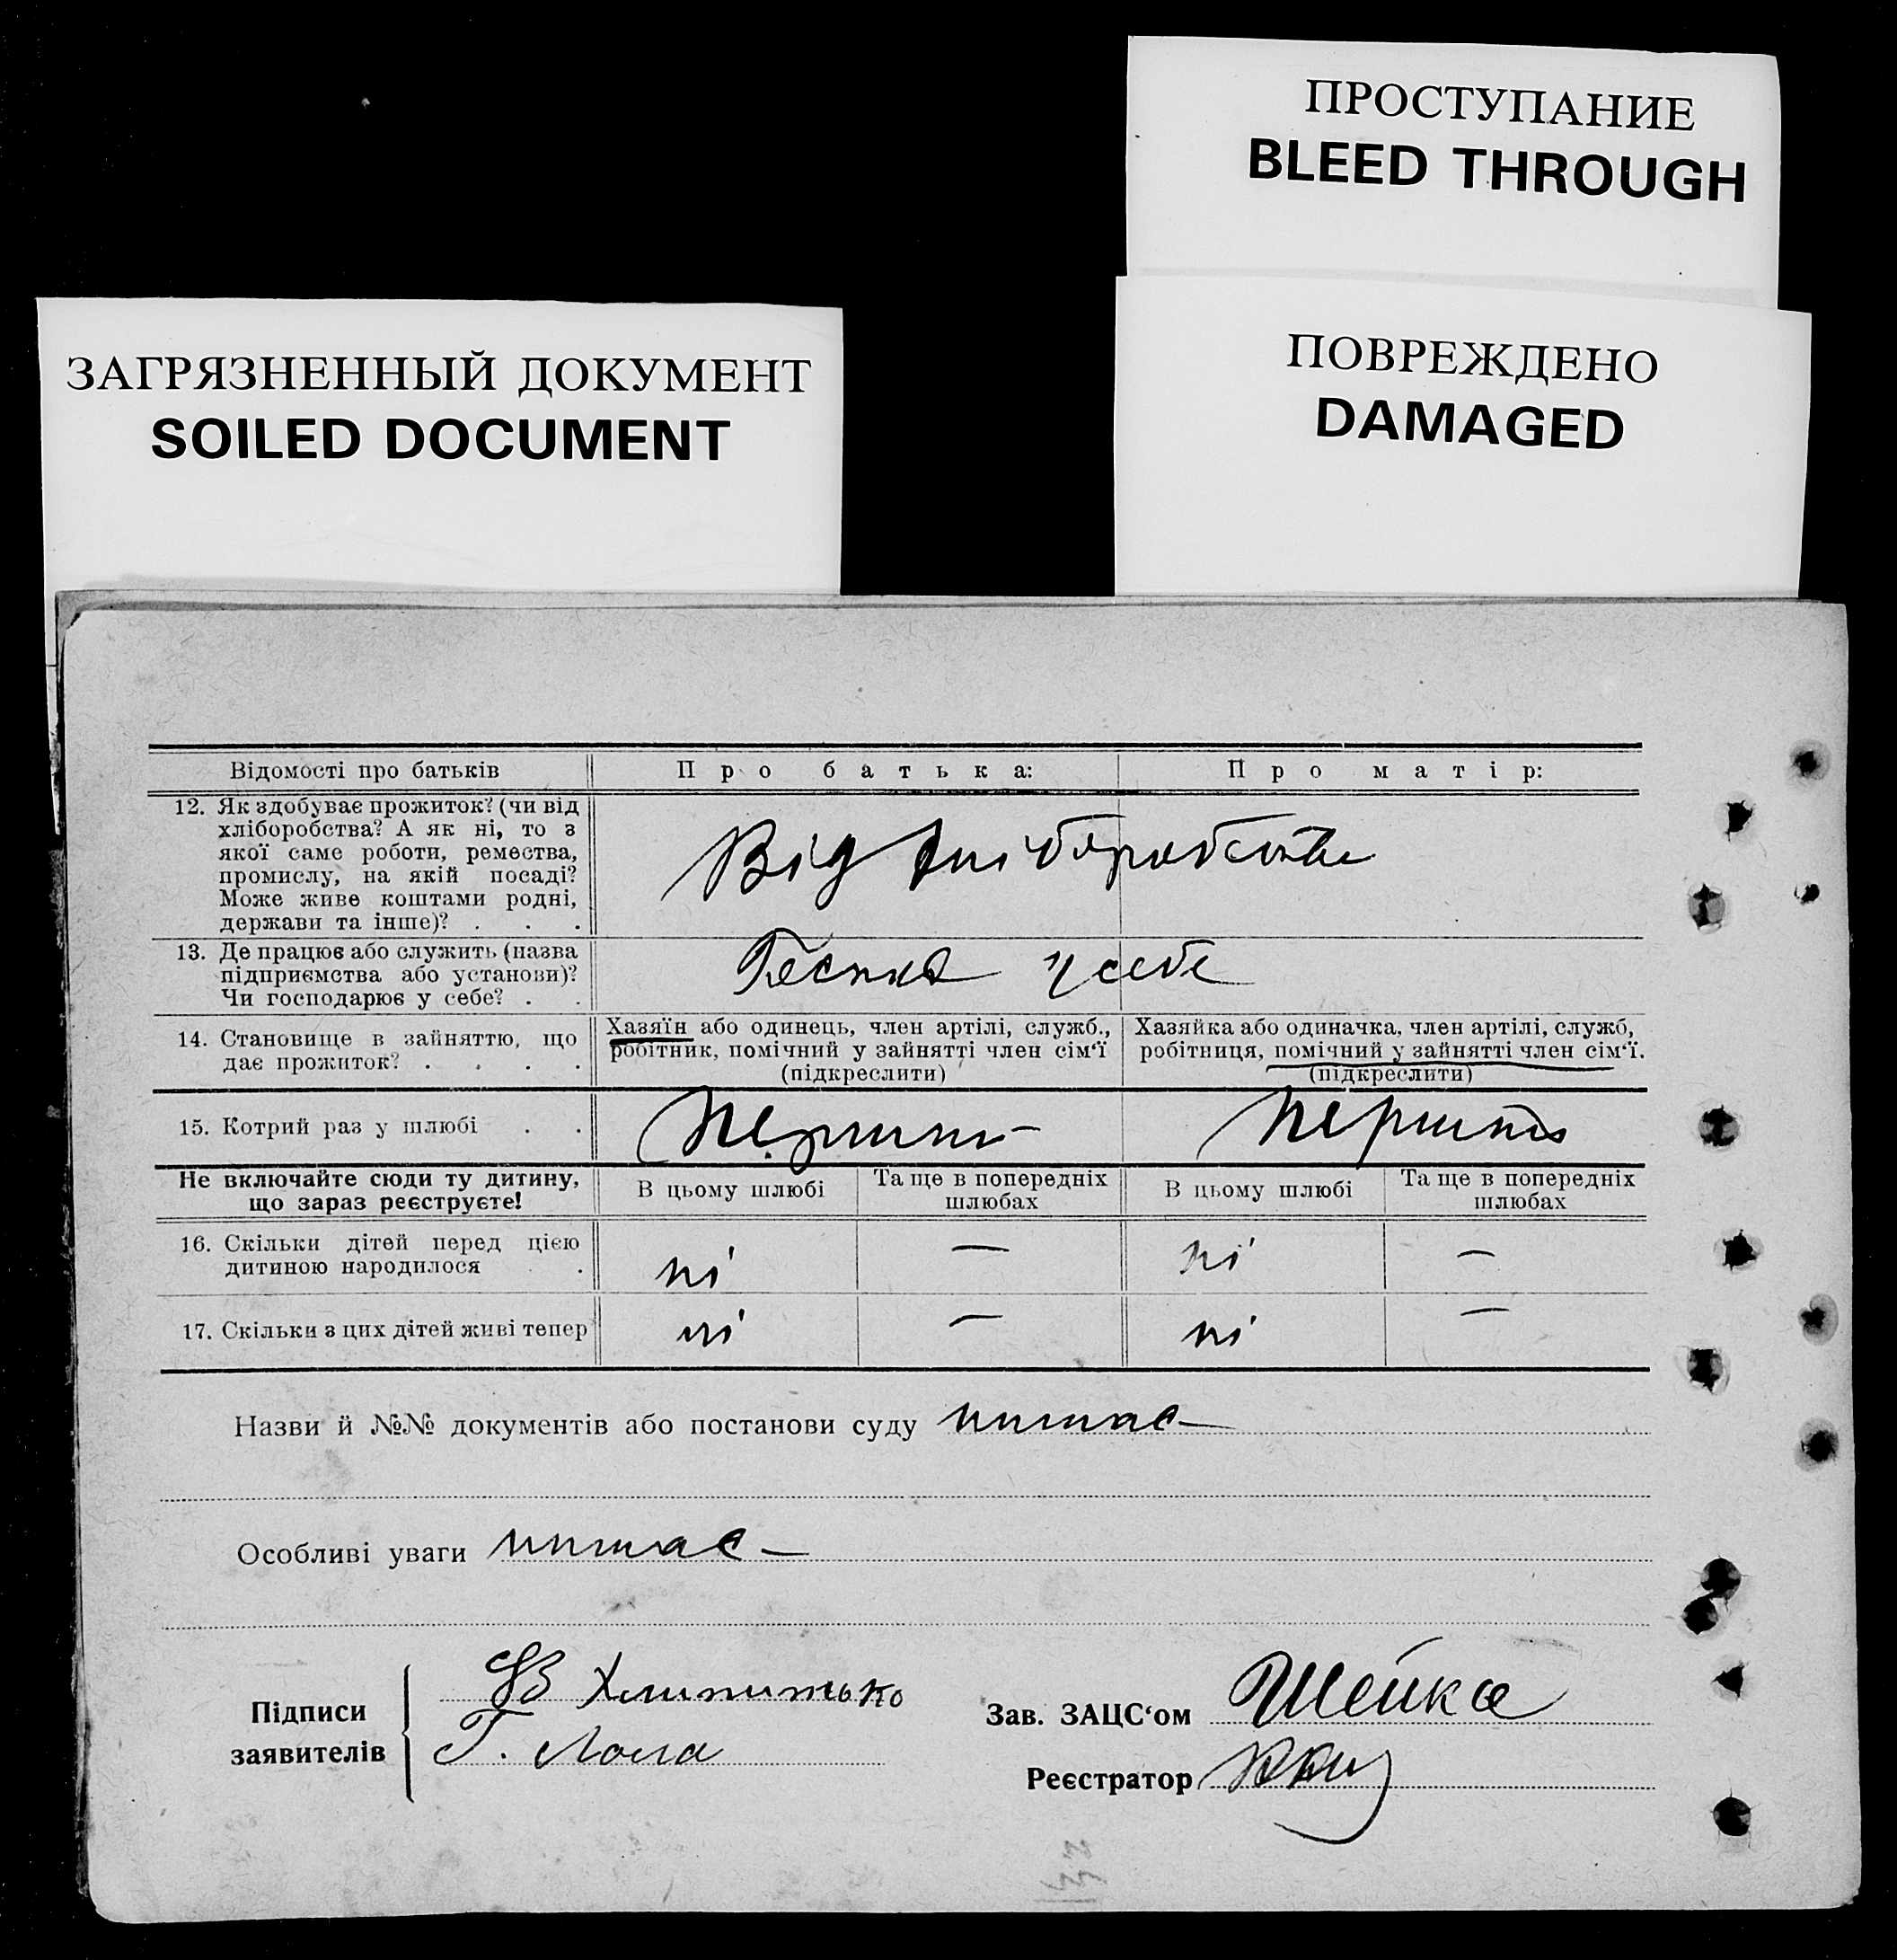 ПРОСТУПАНИЕ
BLEED THROUGH
ЗАГРЯЗНЕННЫЙ ДОКУМЕНТ
SOILED DOCUMENT
ПОВРЕЖДЕНО
DAMAGED
Відомості про батьків Про батька: Про матір:
12. Як здобуває прожиток? (чи від
хліборобства? А як ні, то з
якої саме роботи, ремества,
промислу, на якій посаді?
Може живе коштами родні,
держави та інше)? . . .
Від хліборобства
13. Де працює або служить (назва
підприємства або установи)?
Чи господарює у себе? . .
у себе
14. Становище в зайняттю, що
дає прожиток? . . . .
Хазяїн або одинець, член артілі, служб.,
робітник, помічний у зайнятті член сім‘ї
(підкреслити)
Хазяйка або одиначка, член артілі, служб,
робітниця, помічний у зайнятті член сім‘ї.
(підкреслити)
15. Котрий раз у шлюбі . . перший перший
Не включайте сюди ту дитину,
що зараз реєструєте!
В цьому шлюбі
Та ще в попередніх
шлюбах
В цьому шлюбі
Та ще в попередніх
шлюбах
16. Скільки дітей перед цією
дитиною народилося .
ні — ні —
17. Скільки з цих дітей живі тепер ні — ні —
Назви й №№ документів або постанови суду немає
Особливі уваги немає
Підписи
заявителів
Г. Лола
Зав. ЗАЦС‘ом Шейка
Реєстратор